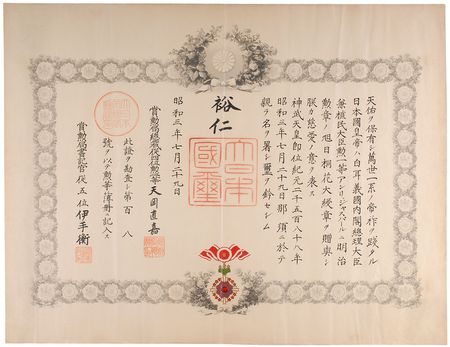 天佑ヲ保有シ萬世一系ノ帝祚ヲ踐タル
日本國皇帝ハ白耳義國内閣總理大臣
兼植民大臣勲一等アンリ、ジャスパールニ明治
勲章ノ旭日桐花大綬章ヲ贈與シ
朕カ慈愛ノ意ヲ表ス
神武天皇即位紀元二千五百八十八年
昭和三年七月二十九日那須ニ於テ
親ラ名ヲ署シ璽ヲ鈐セシム
裕仁
大日本國璽
昭和三年七月二十九日
賞勲局總裁 天岡直嘉
此證ヲ勘査シ第百八
號ヲ以テ勲章簿冊ニ記入ス
賞勲局書記官從五位伊手衡